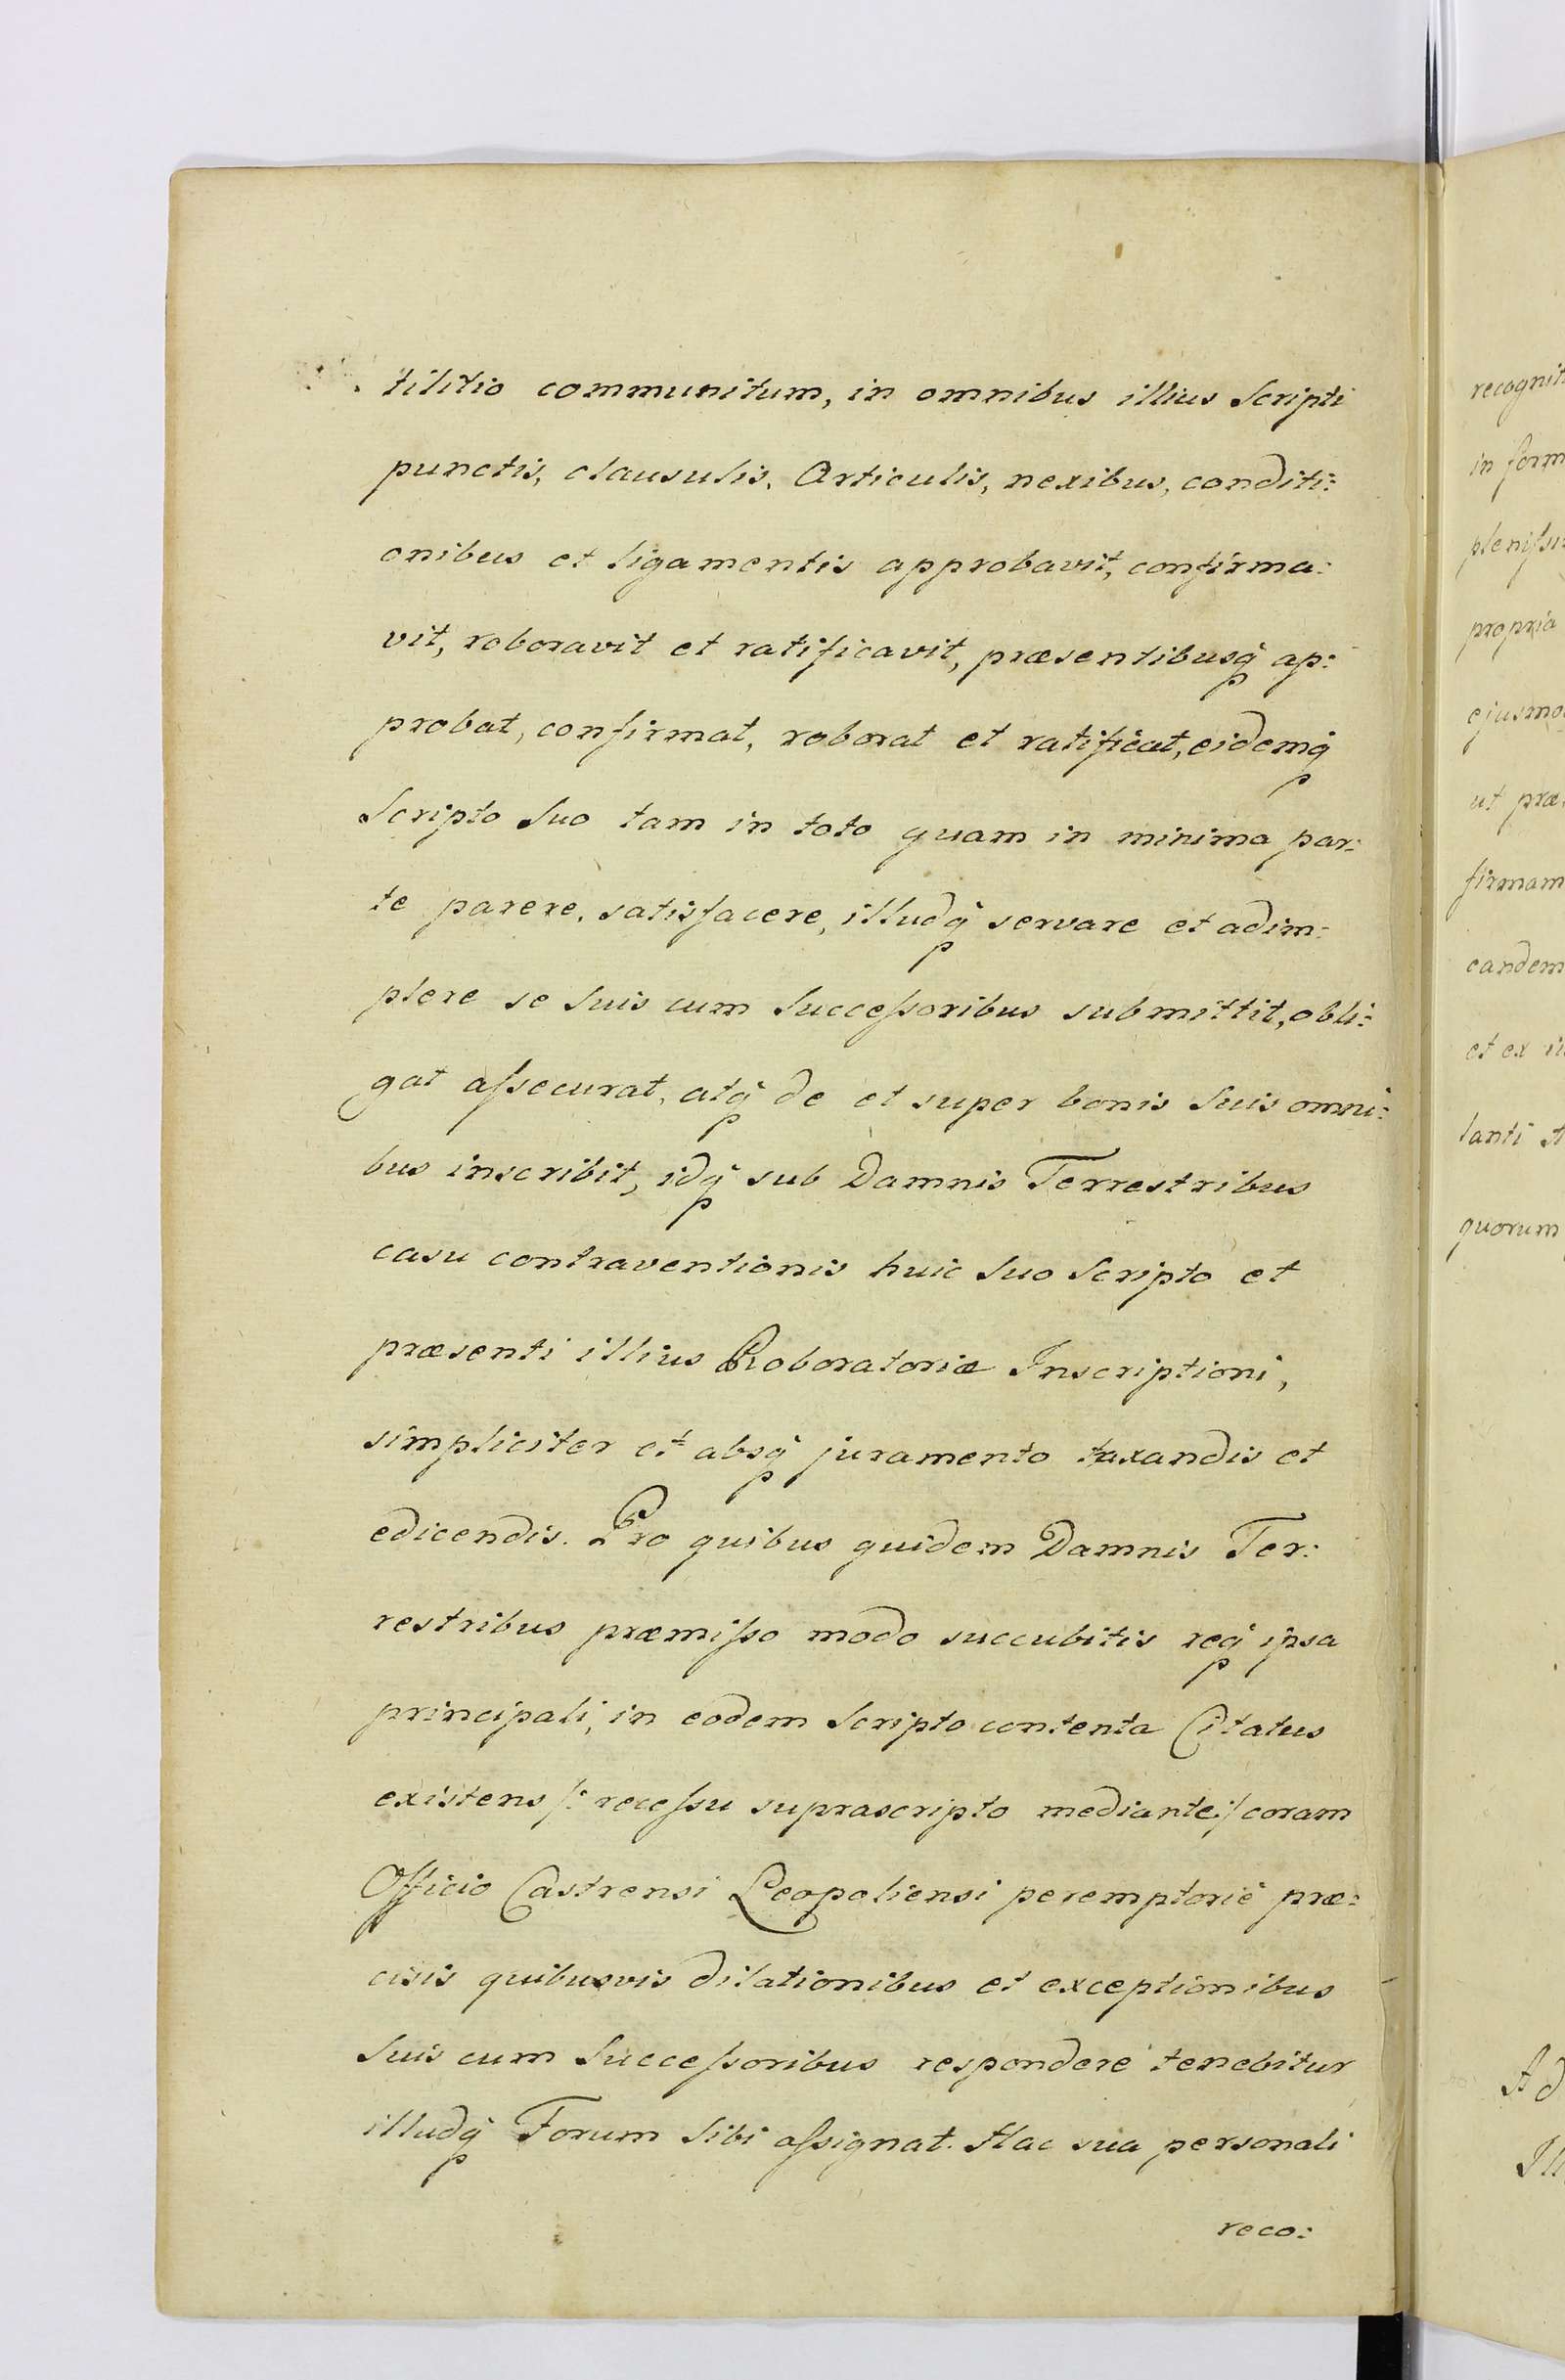 tilitio communitum, in omnibus illius Scripti
punctis, clausulis, Articulis, nexibus, conditi:
onibus et ligamentis approbavit, confirma:
vit, roboravit et ratificavit, præsentibusq ap:
probat, confirmat, roborat et ratificat, eidemq
Scripto Suo tam in toto quam in minima par:
te parere, satisfacere, illudq servare et adim:
plere se Suis cum Succeſsoribus submittit, obli:
gat aſsecurat, atq de et super bonis Suis omni:
bus inscribit, idq sub Damnis Terrestribus
casu contraventionis huic Suo Scripto et
præsenti illius Roboratoriæ Inscriptioni,
simpliciter et absq juramento taxandis et
edicendis. Pro quibus quidem Damnis Ter:
restribus præmiſso modo succubitis req ipsa
principali, in eodem Scripto contenta Citatus
existens /: receſsu suprascripto mediante :/ coram
Officio Castrensi Leopoliensi peremptorie præ:
cisis quibusvis dilationibus et exceptionibus
Suis cum Succeſsoribus respondere tenebitur
illudq Forum Sibi aſsignat. Hac sua personali
reco:
recognit
in form
pleniſsi
propria
ejusmo
ut præ
firmam
eandem
et ex
lanti
quorum
Ad